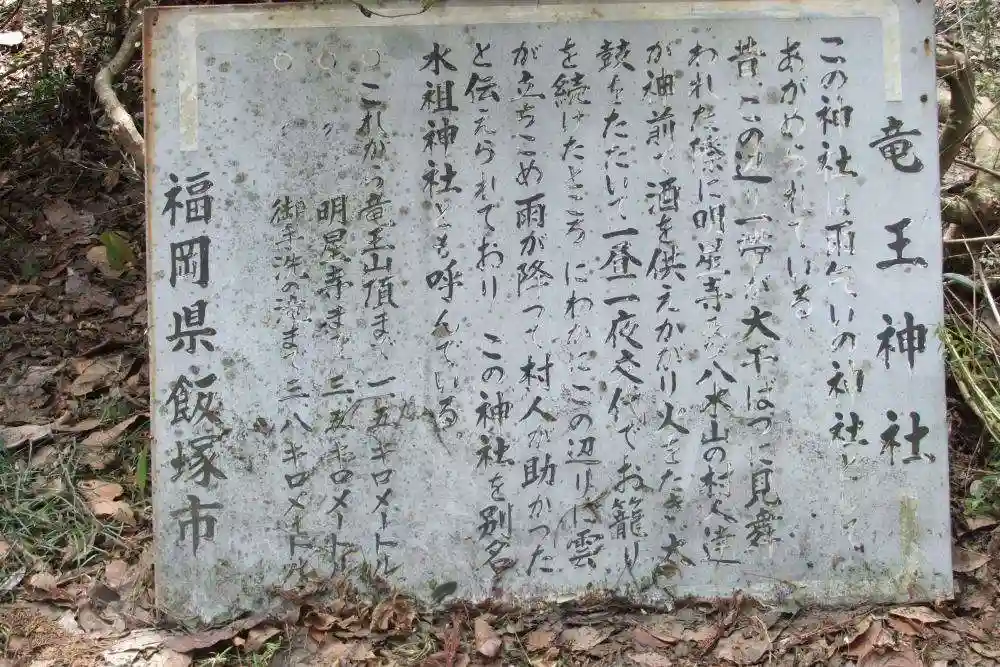 竜王神社
この神社は雨ごいの神社として
あがめられている。
昔、この辺り一帯が大干ばつに見舞
われた際に明星寺など八木山の村人達
が神前で酒を供えかがり火をたき太
鼓をたたいて一昼一夜交代でお籠り
を続けたところにわかにこの辺りに雲
が立ちこめ雨が降って村人が助かった
と伝えられており この神社を別名
水祖神社とも呼んでいる。
○ これから竜王山頂まで 一、五キロメートル
○ 〃 明星寺まで 三、五キロメートル
○ 〃 御手洗の滝まで 二、八キロメートル
福岡県飯塚市